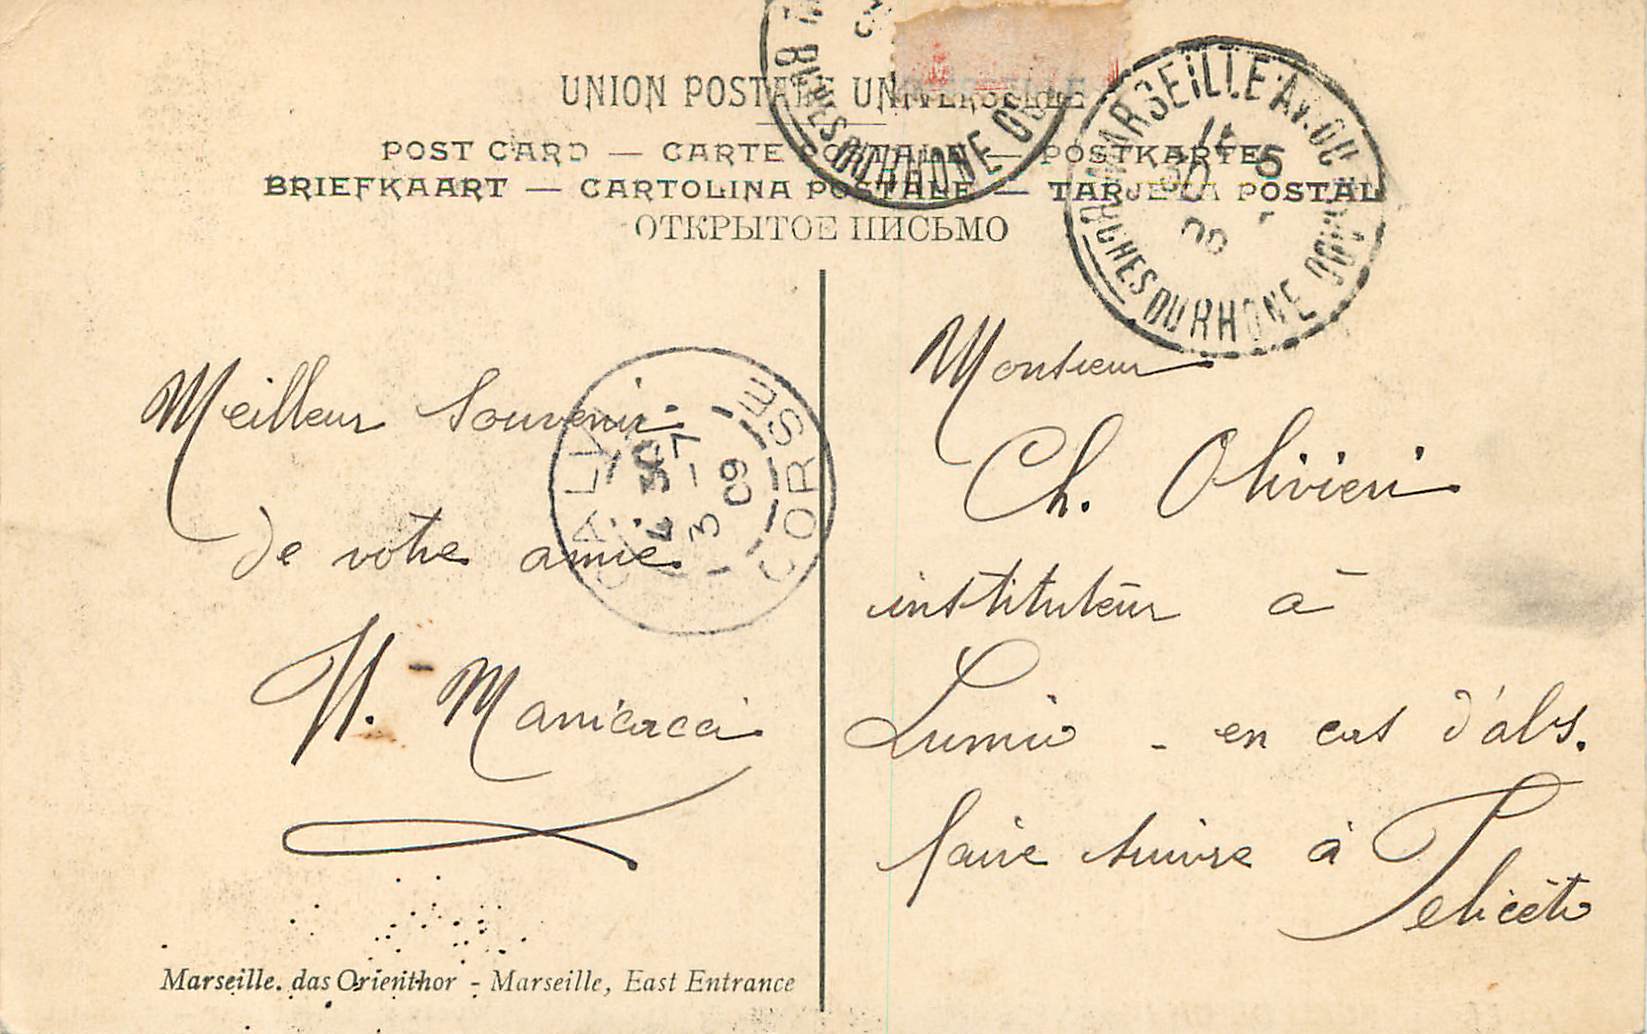 UNION POSTALE UNIVERSELLE
POST CARD — CARTE POSTALE — POSTKARTE
BRIEFKAART — CARTOLINA POSTALE — TARJETA POSTAL
ОТКРЫТОЕ ПИСЬМО
MARSEILLE
BCHES DU RHONE
BCHES DU RHONE
CALVI
4 30
3 - 7
09
CORSE
Meilleur Souvenir
de votre amie
Maniacci
Monsieur
Ch. Olivieri
instituteur à
Lumio - en cas d'abs.
faire suivre à Feliceto
Marseille. das Orienthor - Marseille, East Entrance